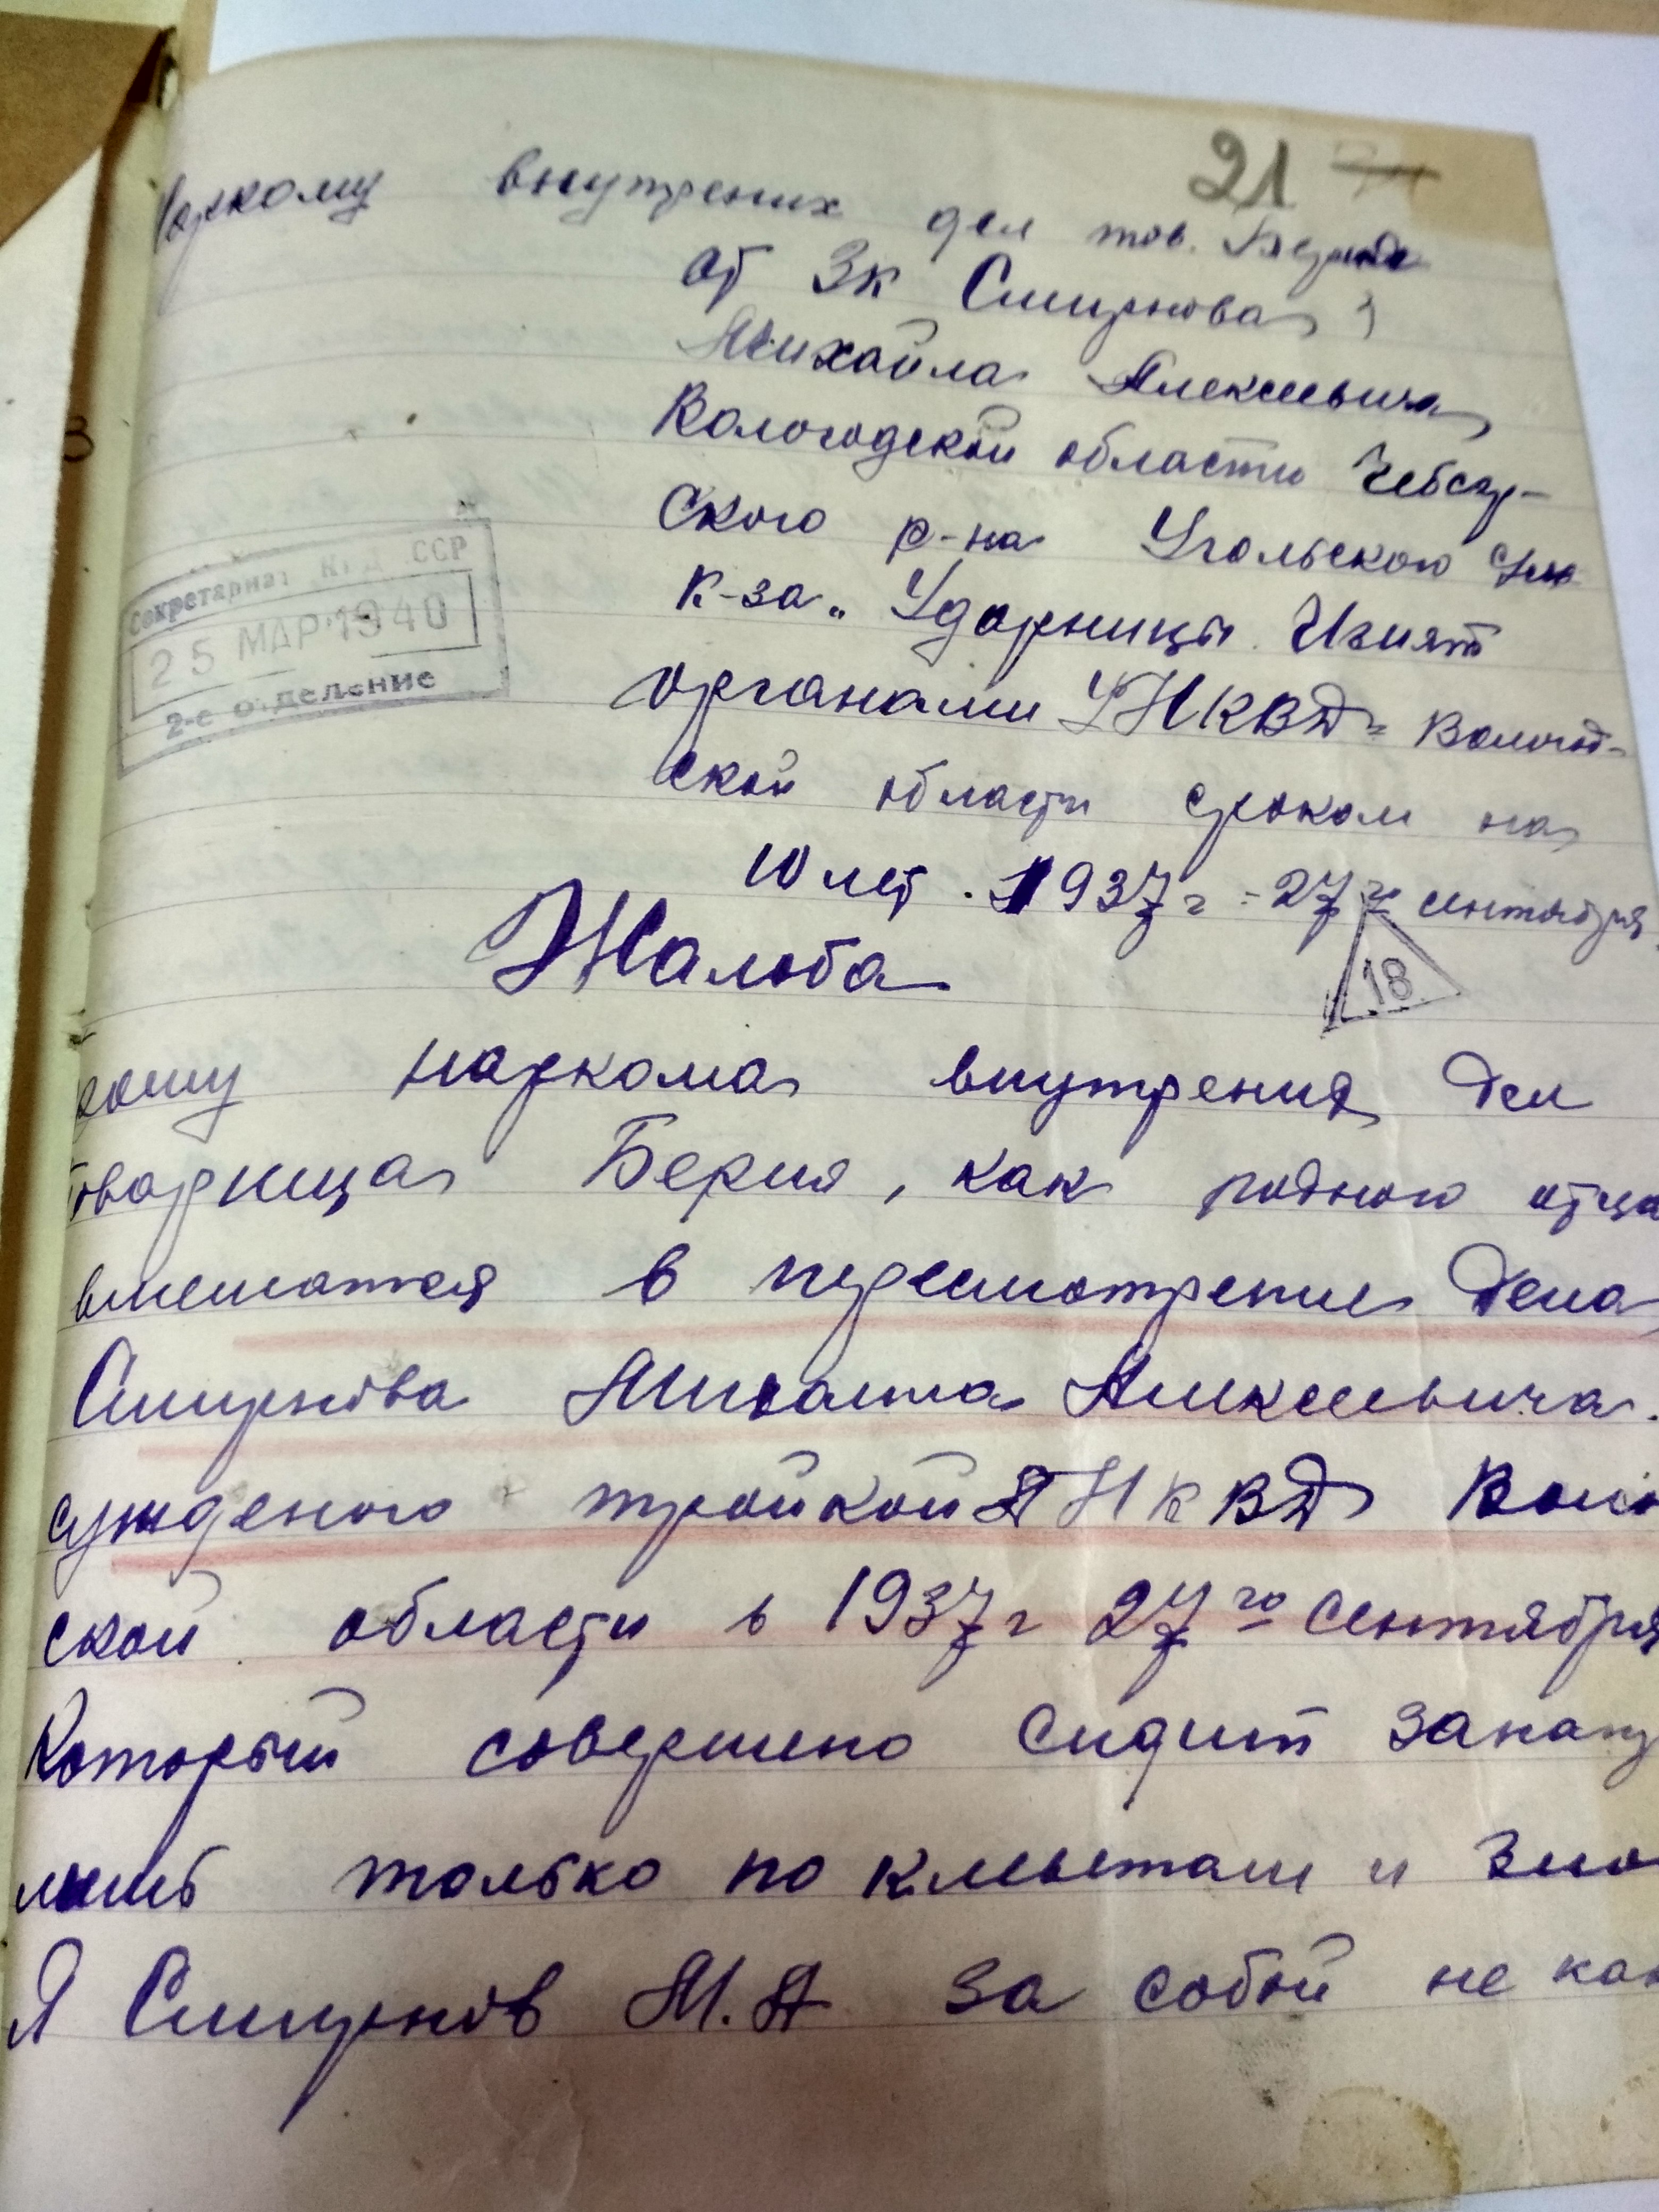 21
Наркому внутрених дел тов. Берия
от Зк Смирнова
Михаила Алексеевича
Вологодской области Чебсар-
ского р-на Угольского
к-за „Ударницы. Изият
органами УНКВД Вологод-
ской области сроком на
10 лет. 1937 г - 27 го сентября
Секретариат НКВД СССР
25 МАР 1940
2-е отделение
Жалоба
18
рошу наркома внутрения дел
товарища Берия, как родного отца
вмешатся в пересмотрение дела
Смирнова Михаила Алексеевича.
сужденого тройкой НКВД Воло
ской области в 1937 г 27 го сентября
Который совершено сидит занап
лишь только по клеветам и
Я Смирнов М.А за собой не как